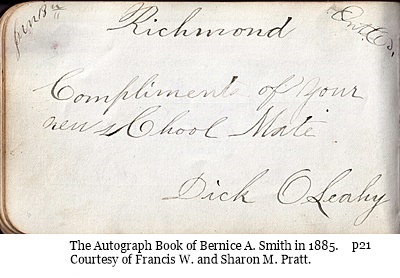 Richmond
Compliments of your
new sChool Mate
Dick OLeahy
The Autograph Book of Bernice A. Smith in 1885. p21
Courtesy of Francis W. and Sharon M. Pratt.